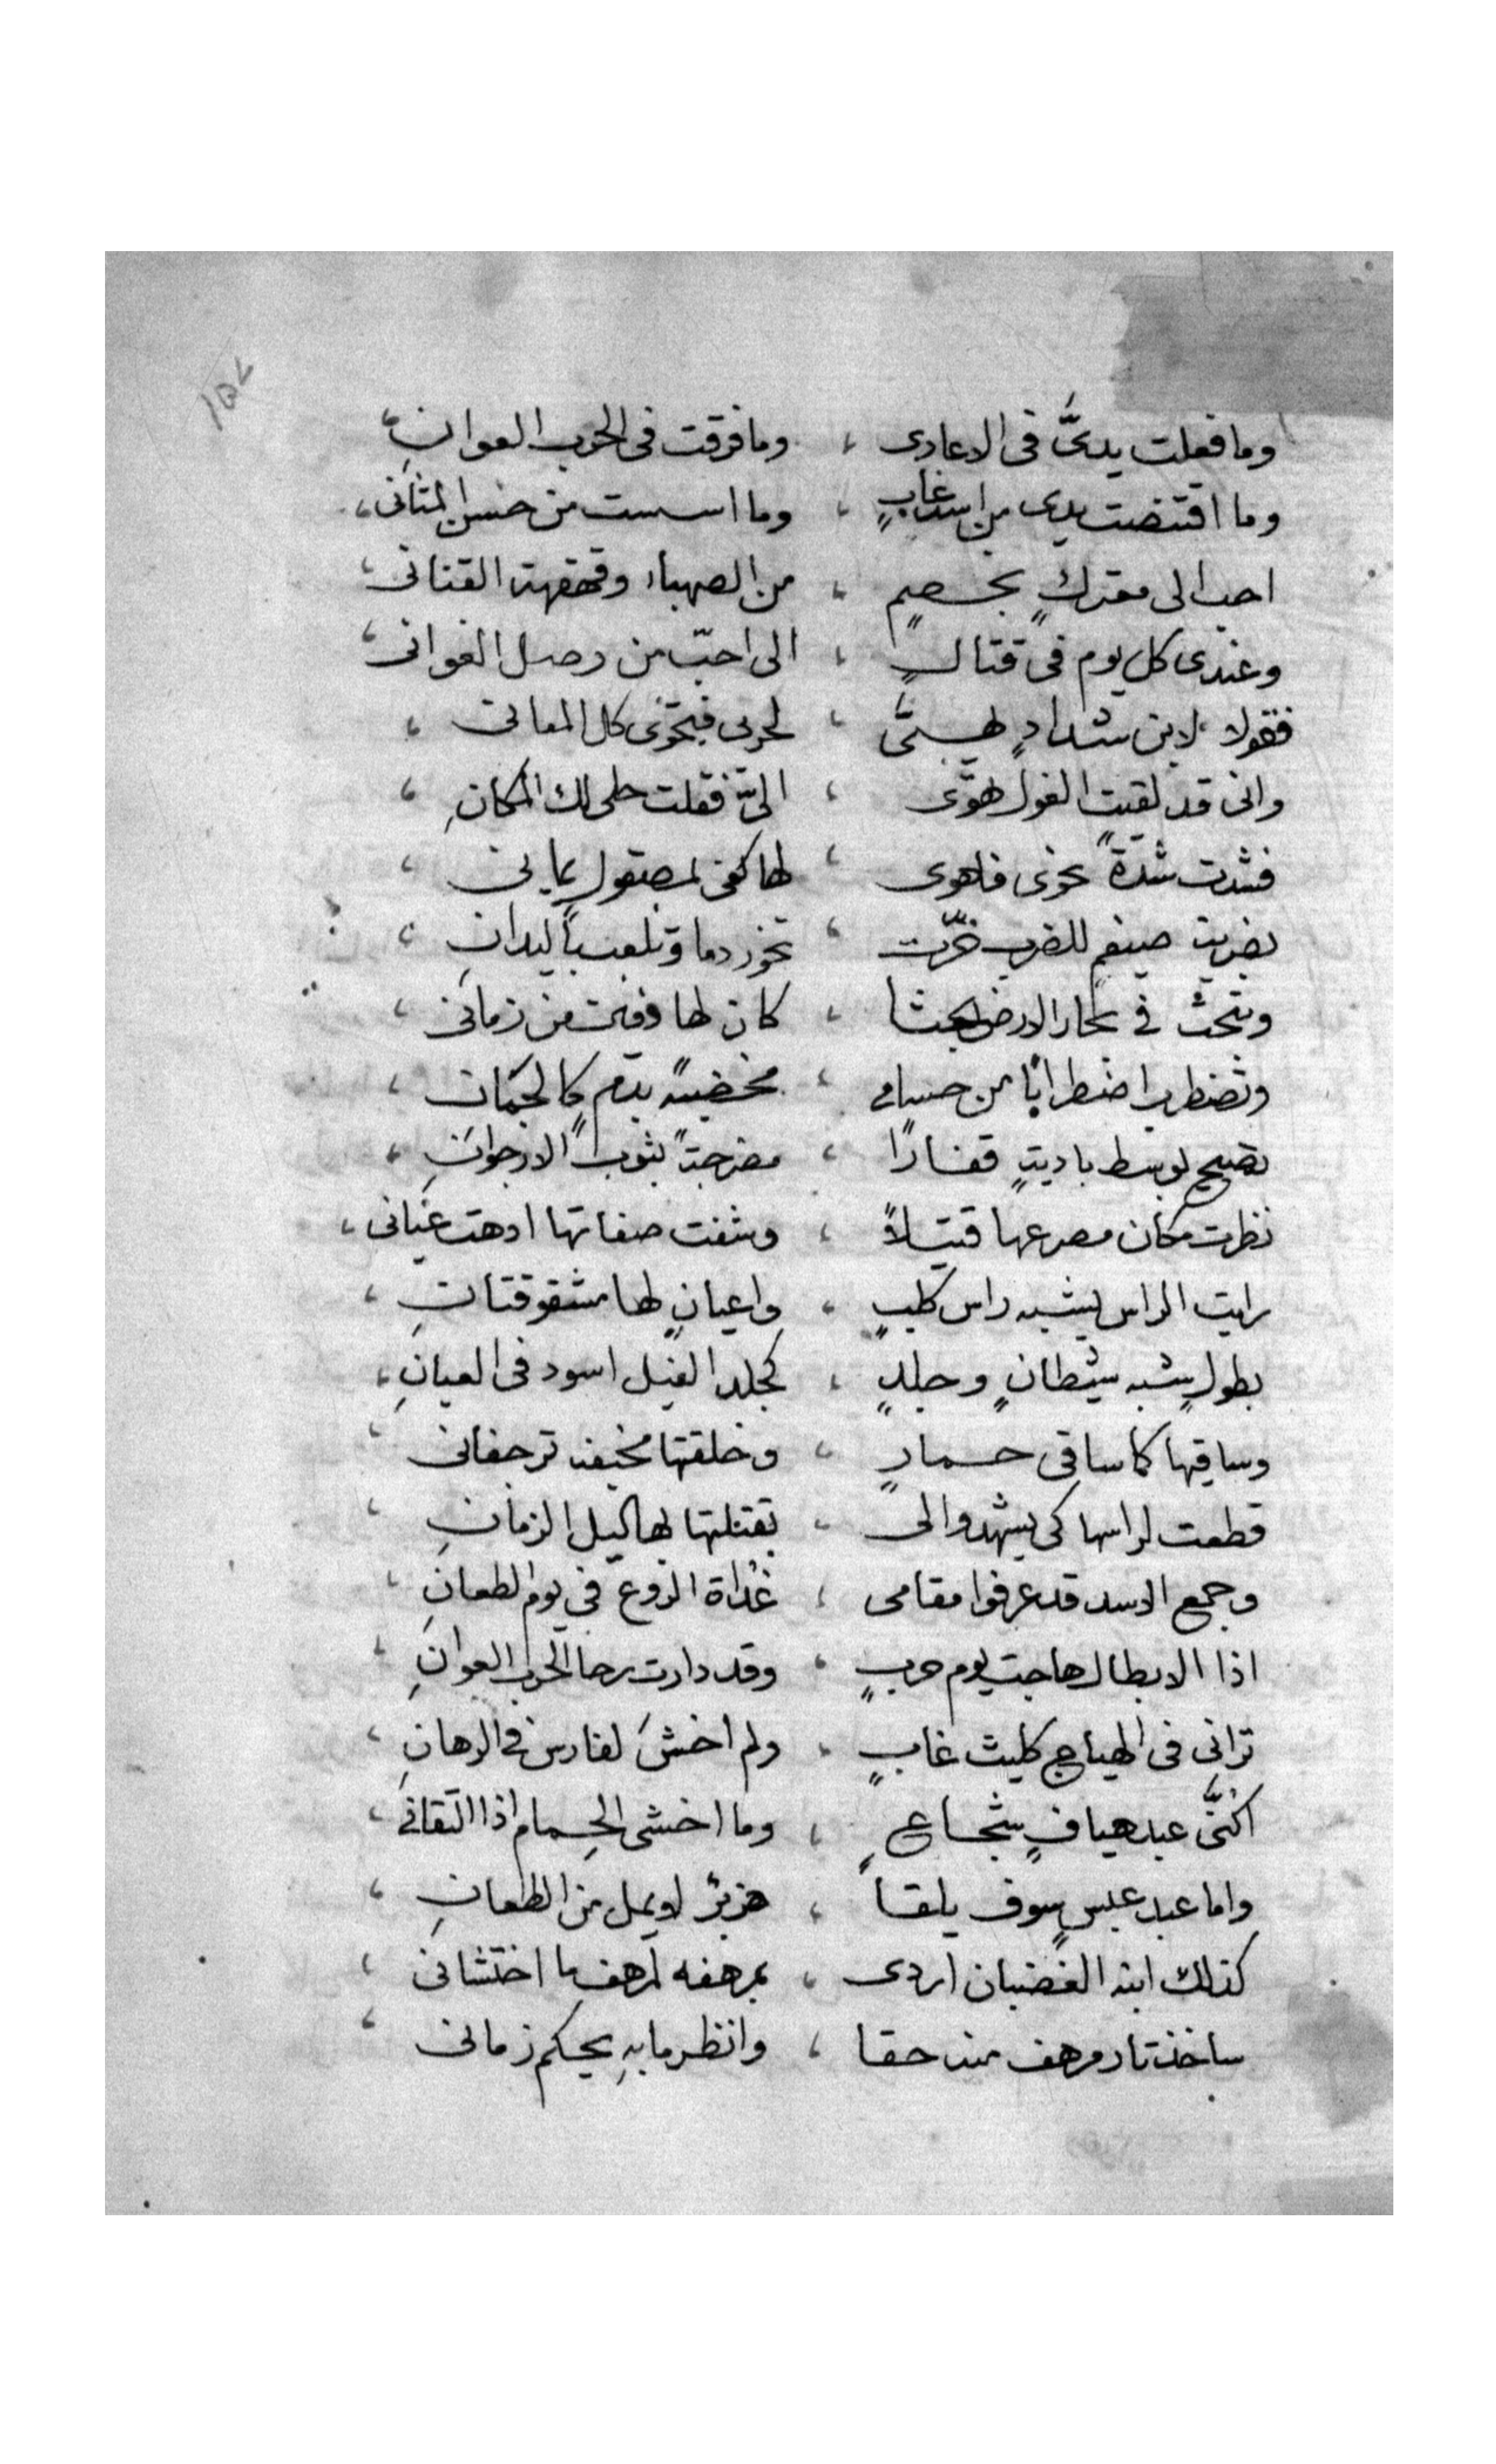 وما فعلت يديَّ فى الاعادى ، وما فرقت فى الحرب العوانِ ،
وما اقتضت يدى من اسد غابٍ ، وما اسست من حسن المثانى ،
احب الى معتركٍ بخصمٍ ، من الصهباء وقهقهة القنانى ،
وعندى كل يوم فى قتالٍ ، الى احبّ من وصل الغوانى ،
فقولا لابن شدادٍ يهىَّ ، لحربى فيحوى كل المعانى ،
وانى قد لقيت الغول هوَّى ، الىَّ فقلت حلى لك المكانِ ،
فشدت شدةً نحوى فاهوى ، لها كفى لمصقول يمانى ،
بضربت ضيغم للضرب خرّت ، تخور دما وتلعب باليدانِ ،
وتبحث فى بحار الارض بحثا ، كان لها وقت من زمانى ،
وتضطرب اضطرابًا من حسامى ، مخضبةً بدمٍ كالجمان ،
تصيح بوسط باديةٍ قفارًا ، مضرجةً بثوب الارجوانِ ،
نظرت مكان مصرعها قتيلاً ، وشفت صفاتها ادهت عيانى ،
رايت الراس يشبه راس كلبٍ ، واعيانٍ لها مشقوقتانِ ،
بطولٍ شبه شيطانٍ وجلدٍ ، كجلد الفيل اسود فى العيانِ ،
وساقيها كما ساقى حمارٍ ، وخلقتها مخيفه ترجفانى ،
قطعت لراسها كى يشهدوا لى ، بقتلتها لها ليل الزمانِ ،
وجمع الاسد قد عرفوا مقامى ، غداة الروع فى يوم الطعانِ ،
اذا الابطال هاجت يوم حربٍ ، وقد دارت رحا الحرب العوانِ ،
ترانى فى الهياج كليث غابٍ ، ولم اخشَ لفارس فى الرهانِ ،
اكنَّى عبد هيافٍ شجاعٍ ، وما اخشى الحمام اذا التقانى ،
واما عبد عبسٍ سوف يلقا ، هزبرٌ لا يمل من الطعانِ ،
كذلك ابنه الغضبان اردى ، بمرهفه لمرهف ما اختشانى ،
ساخذ تار مرهف منه حقا ، وانظر ما بهِ يحكم زمانى ،